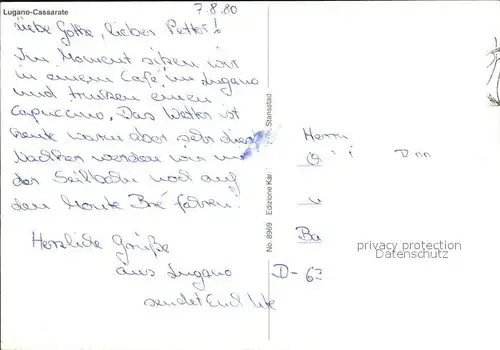 Lugano-Cassarate
7.8.80
Liebe Gotte, lieber Petter!
Im Moment sitzen wir
in einem Café in Lugano
und trinken einen
Capuccino. Das Wetter ist
heute warm aber sehr
Nachher werden wir
der Seilbahn noch auf
den Monte Bré fahren!
Herzliche Grüße
aus Lugano
sendet Euch Ute
No. 8969 Edizione Stansstad
Herrn
Ba
D-63
privacy protection
Datenschutz